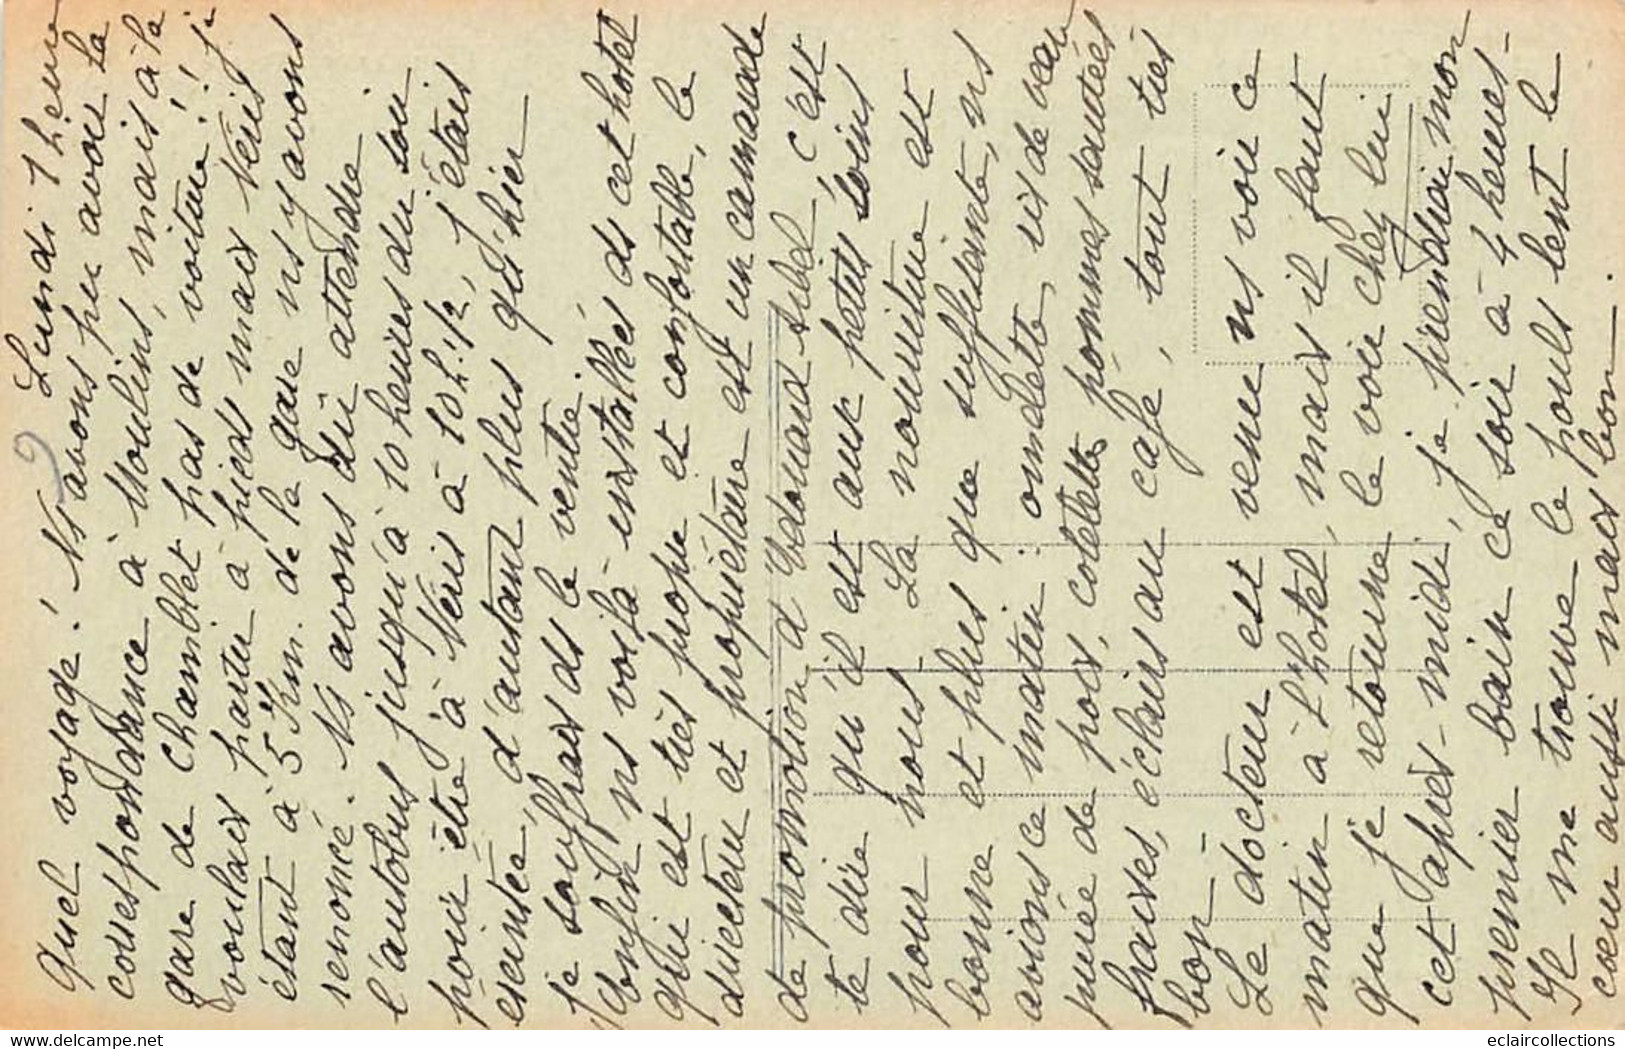 Lundi 1 heure
Quel voyage! Ns avons pu avoir la
correspondance à Moulins, mais à la
gare de Chamblet pas de voiture!! je
voulais partir à pieds mais Néris
étant à 5 Km. de la gare ns y avons
renoncé. Ns avons dû attendre
l'autobus jusqu'à 10 heures du soir
pour être à Néris à 10h.1/2, j'étais
éreintée, d'autant plus qu'hier
je souffrais ds le ventre.
Enfin ns voilà installées ds cet hotel
qui est très propre et confortable, le
directeur et propriétaire est un camarade
de promotion d'Edouard Aubel, c'est
te dire qu'il est aux petits soins
pour nous. La nourriture est
bonne et plus que suffisante, ns
avions ce matin : omelette, ris de veau
purée de pois, cotelette pommes sautées
fraises, éclairs au café, tout très
bon.
Le docteur est venu ns voir ce
matin à l'hotel, mais il faut
que je retourne le voir chez lui
cet après-midi, je prendrai mon
premier bain ce soir à 4 heures-
Il me trouve le pouls lent le
cœur aussi mais bon.
www.delcampe.net
eclaircollections